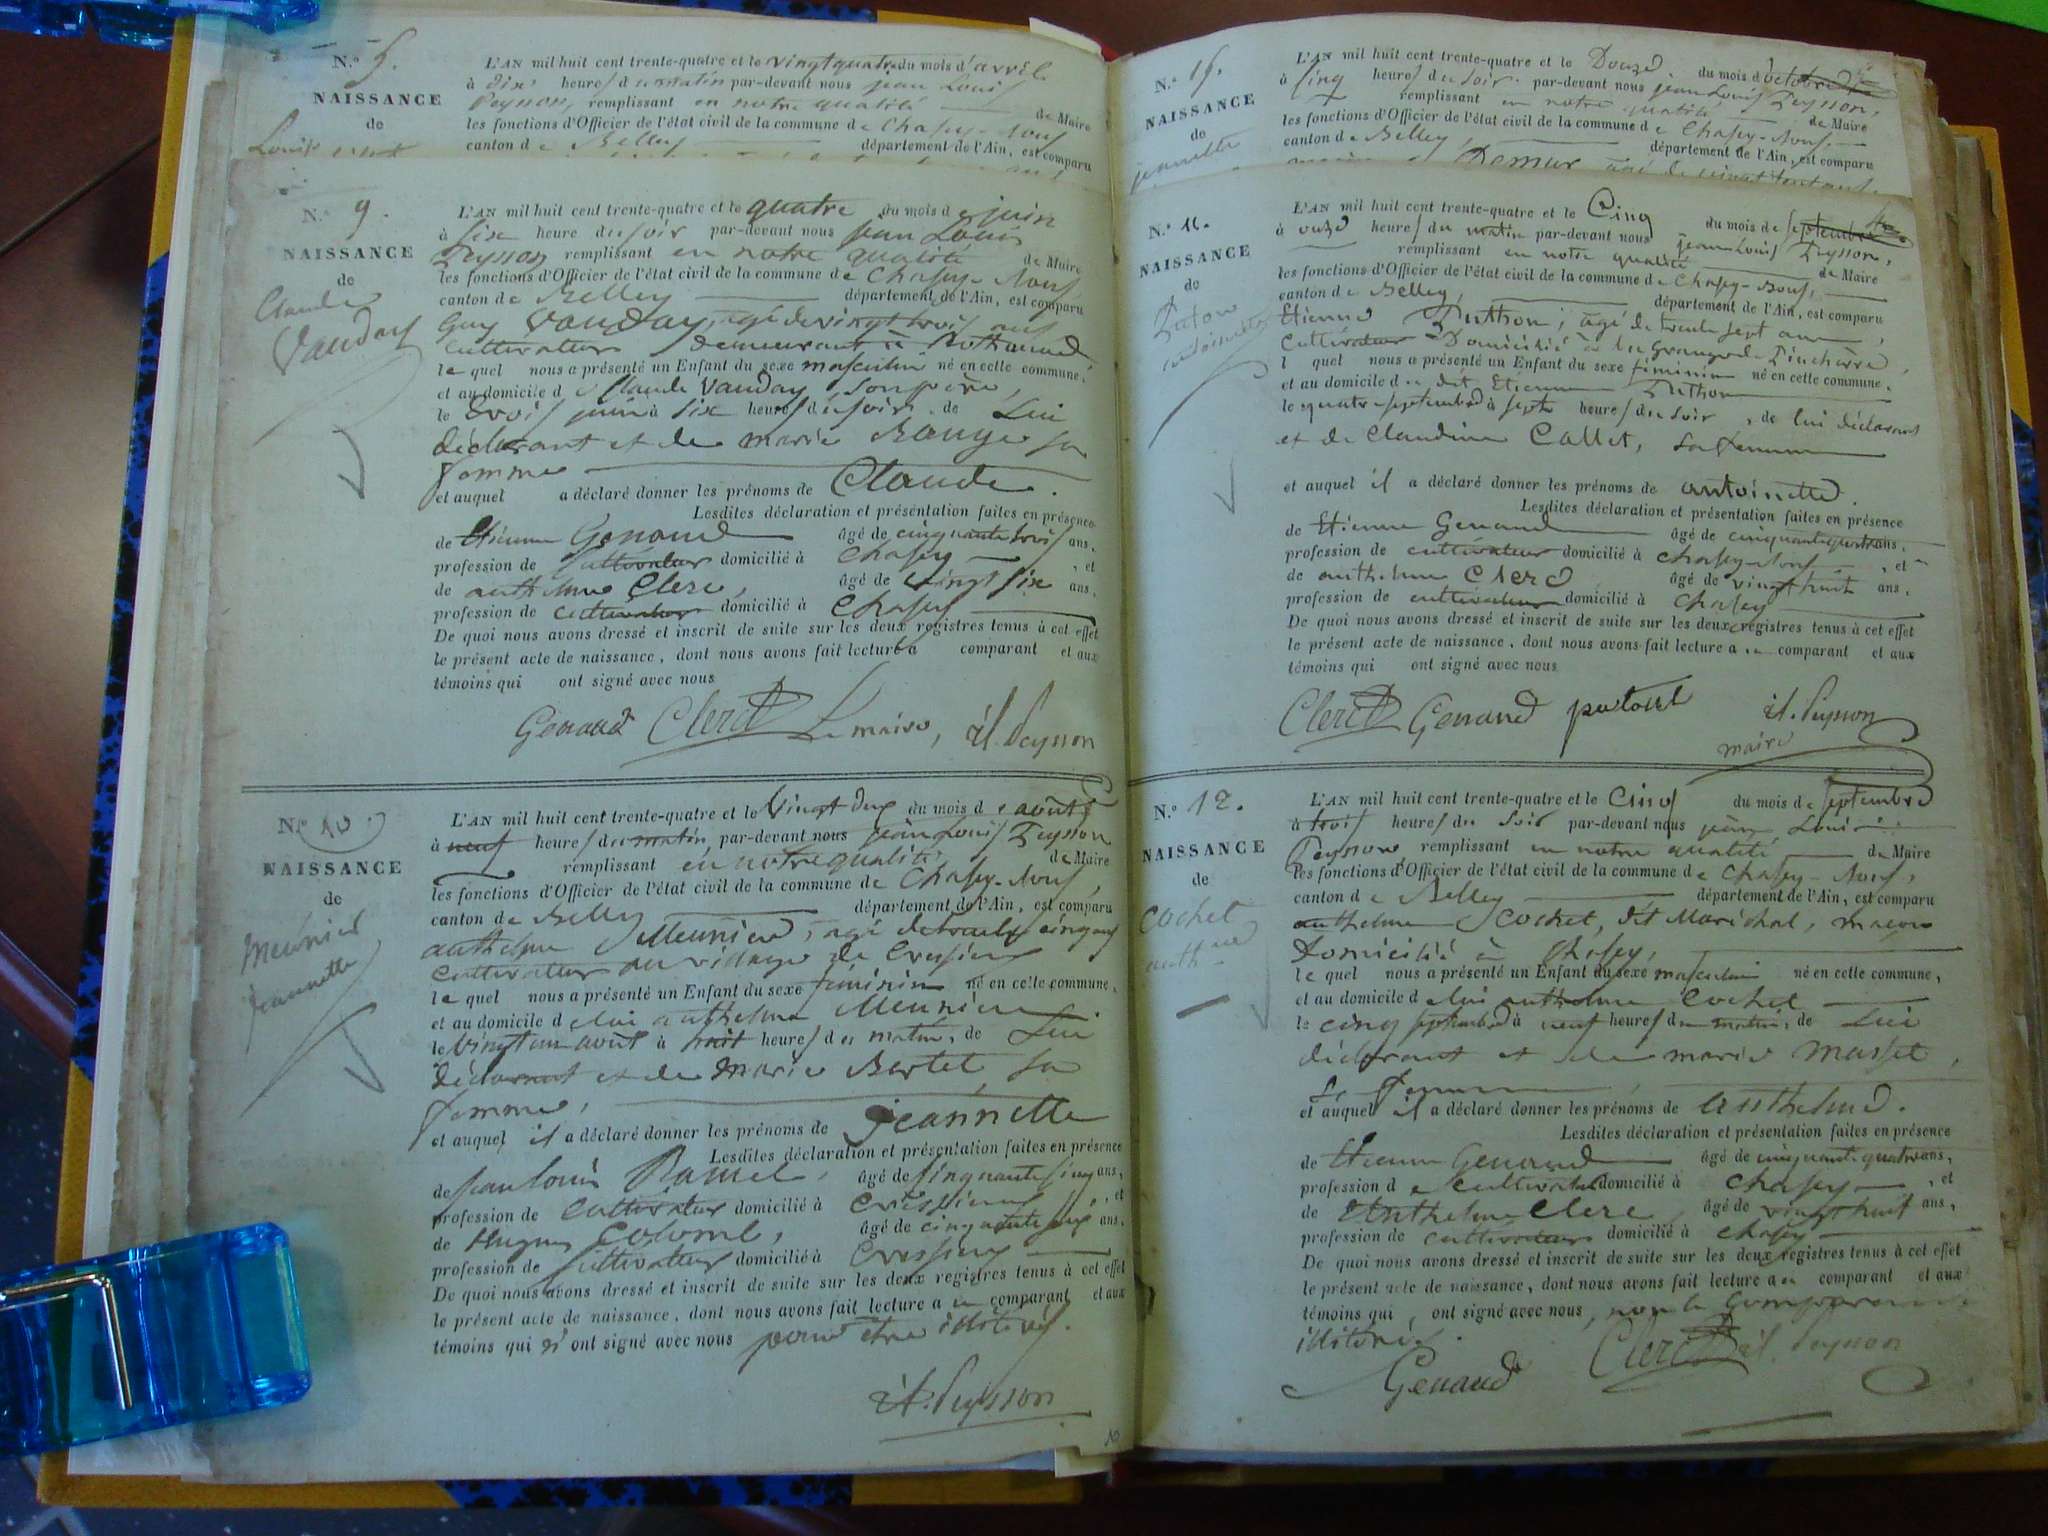 N.º 5.
NAISSANCE
de
Louis
L'AN mil huit cent trente-quatre et le vingtquatre du mois d'avril
à dix heures du matin par-devant nous jean Louis
Peysson, remplissant en notre qualité de Maire
les fonctions d'Officier de l'état civil de la commune de Chasey-
canton de Belley département de l'Ain, est comparu
N.º 9.
NAISSANCE
de
Claude
Vauday
L'AN mil huit cent trente-quatre et le quatre du mois de juin
à six heure du soir par-devant nous jean Louis
Peysson remplissant en notre qualité de Maire
les fonctions d'Officier de l'état civil de la commune de Chasey-
canton de Belley département de l'Ain, est comparu
Guy Vauday, agé de vingt trois ans
cultivateur demeurant à
le quel nous a présenté un Enfant du sexe masculin né en cette commune,
et au domicile de Claude Vauday son père,
le trois juin à six heures du soir de Lui
déclarant et de marie Rouge sa
femme
et auquel a déclaré donner les prénoms de Claude.
Lesdites déclaration et présentation faites en présence
de Etienne Genand âgé de cinquante trois ans,
profession de cultivateur domicilié à Chasey, et
de anthelme Clerc, âgé de vingt six ans,
profession de cultivateur domicilié à Chasey
De quoi nous avons dressé et inscrit de suite sur les deux registres tenus à cet effet
le présent acte de naissance, dont nous avons fait lecture a comparant et aux
témoins qui ont signé avec nous
Genand Clerc Le maire, Peysson
N.º 10.
NAISSANCE
de
Meunier
Jeannette
L'AN mil huit cent trente-quatre et le Vingt deux du mois de août
à neuf heures du matin par-devant nous jean Louis Peysson
remplissant en notre qualité de Maire
les fonctions d'Officier de l'état civil de la commune de Chasey-
canton de Belley département de l'Ain, est comparu
anthelme Meunier, agé de trente cinq ans
cultivateur au village de Cressieu
le quel nous a présenté un Enfant du sexe féminin né en cette commune,
et au domicile de lui anthelme Meunier
le Vingt un août à huit heures du matin, de Lui
déclarant et de Marie Bertet, sa
femme,
et auquel il a déclaré donner les prénoms de jeannette
Lesdites déclaration et présentation faites en présence
de jean louis Ramel, âgé de cinquante cinq ans,
profession de cultivateur domicilié à Cressieu, et
de Hugues Colomb, âgé de cinquante ans,
profession de cultivateur domicilié à Cressieu
De quoi nous avons dressé et inscrit de suite sur les deux registres tenus à cet effet
le présent acte de naissance, dont nous avons fait lecture a comparant et aux
témoins qui n'ont signé avec nous pour être
Peysson
10
N.º 15.
NAISSANCE
de
jeannette
L'AN mil huit cent trente-quatre et le Douze du mois d'octobre
à cinq heures du soir par-devant nous jean Louis Peysson,
remplissant en notre qualité de Maire
les fonctions d'Officier de l'état civil de la commune de Chasey-
canton de Belley, département de l'Ain, est comparu
Demur agé de vingt huit ans
N.º 11.
NAISSANCE
de
Antoinette
L'AN mil huit cent trente-quatre et le Cinq du mois de septembre
à onze heures du matin par-devant nous jean Louis Peysson,
remplissant en notre qualité de Maire
les fonctions d'Officier de l'état civil de la commune de Chasey-
canton de Belley, département de l'Ain, est comparu
Etienne Puthon, agé de trente sept ans,
cultivateur Domicilié à la grange de
l quel nous a présenté un Enfant du sexe féminin né en cette commune,
et au domicile du dit Etienne Puthon
le quatre septembre à sept heures du soir, de lui déclarant
et de Claudine Callet, sa femme
et auquel il a déclaré donner les prénoms de antoinette.
Lesdites déclaration et présentation faites en présence
de Etienne Genand âgé de cinquante quatre ans,
profession de cultivateur domicilié à Chasey-, et
de anthelme Clerc âgé de vingt huit ans,
profession de cultivateur domicilié à Chasey
De quoi nous avons dressé et inscrit de suite sur les deux registres tenus à cet effet
le présent acte de naissance, dont nous avons fait lecture a comparant et aux
témoins qui ont signé avec nous
Clerc Genand Peysson
maire
N.º 12.
NAISSANCE
de
Cochet
L'AN mil huit cent trente-quatre et le Cinq du mois de septembre
à trois heures du soir par-devant nous jean Louis
Peysson remplissant en notre qualité de Maire
les fonctions d'Officier de l'état civil de la commune de Chasey-
canton de Belley département de l'Ain, est comparu
anthelme Cochet, dit Maréchal, maçon
Domicilié à Chasey,
le quel nous a présenté un Enfant du sexe masculin né en cette commune,
et au domicile de lui anthelme Cochet
le cinq septembre à neuf heures du matin, de Lui
déclarant et de marie Masset,
sa femme
et auquel il a déclaré donner les prénoms de Anthelme.
Lesdites déclaration et présentation faites en présence
de Etienne Genand âgé de cinquante quatre ans,
profession de cultivateur domicilié à Chasey, et
de Anthelme Clerc âgé de vingt huit ans,
profession de cultivateur domicilié à Chasey
De quoi nous avons dressé et inscrit de suite sur les deux registres tenus à cet effet
le présent acte de naissance, dont nous avons fait lecture a comparant et aux
témoins qui ont signé avec nous, non le comparant
Genand Clerc Peysson